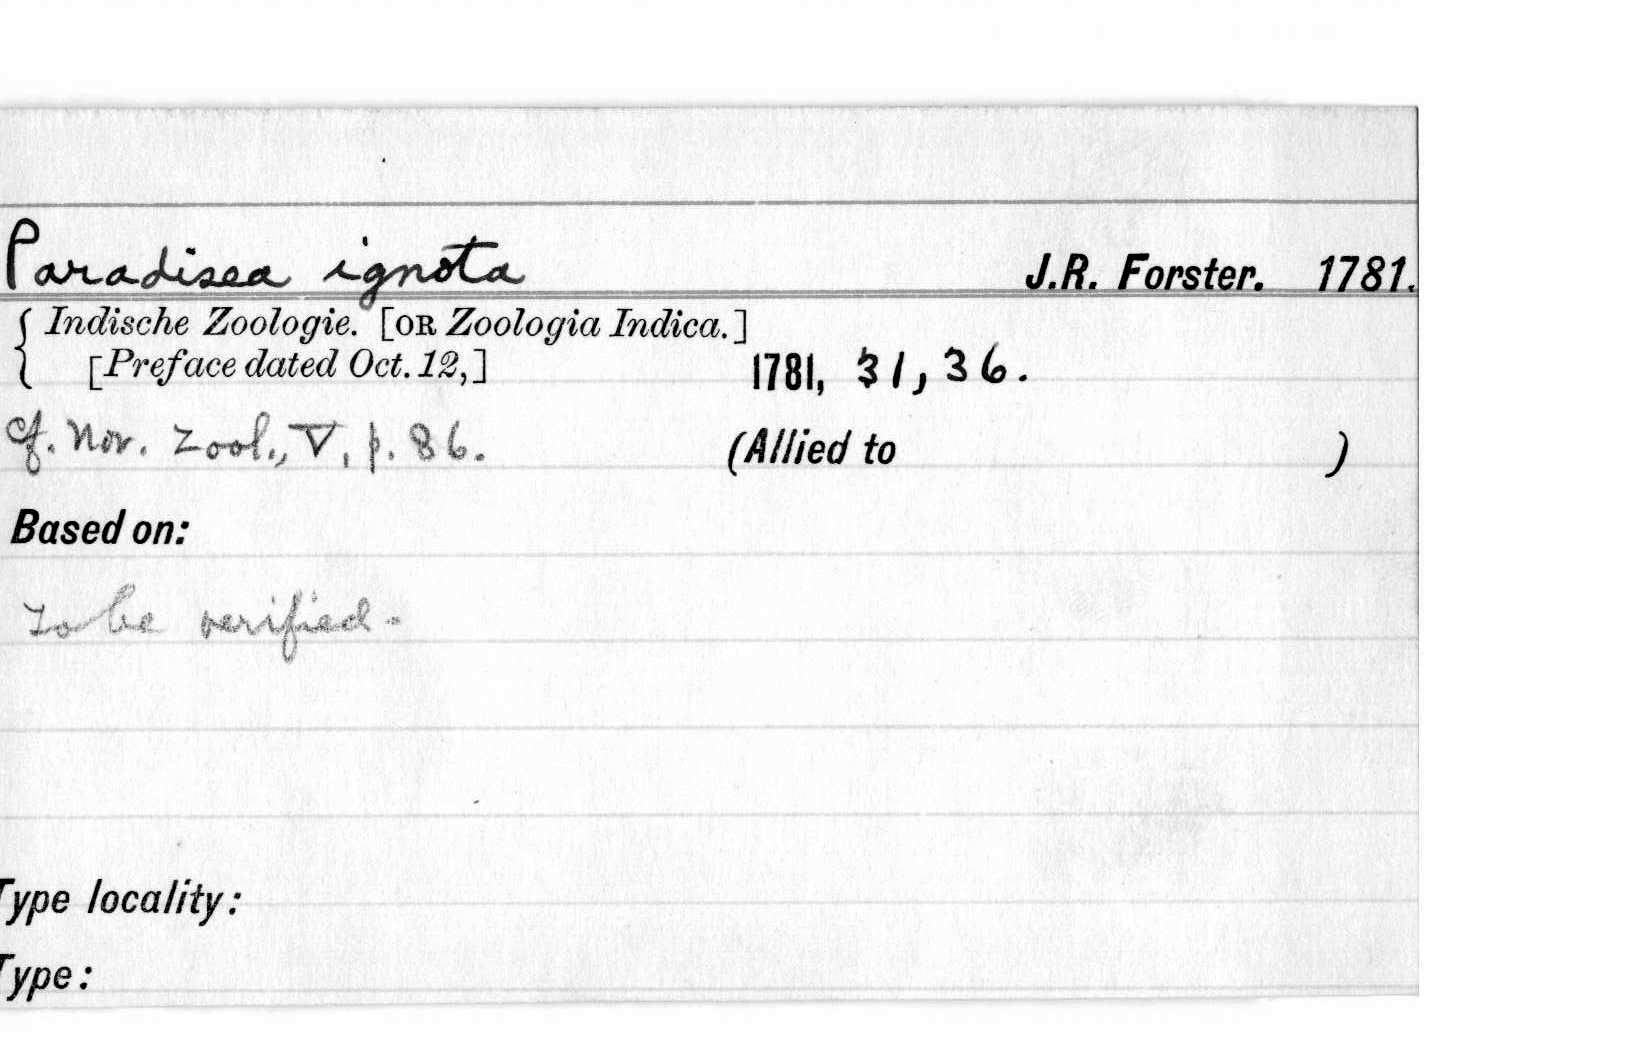 Paradisea ignota J.R. Forster. 1781.
{ Indische Zoologie. [OR Zoologia Indica.]
[Preface dated Oct. 12,] 1781, 31, 36.
Cf. Nov. Zool., V, p. 86. (Allied to )
Based on:
To be verified.
Type locality:
Type: